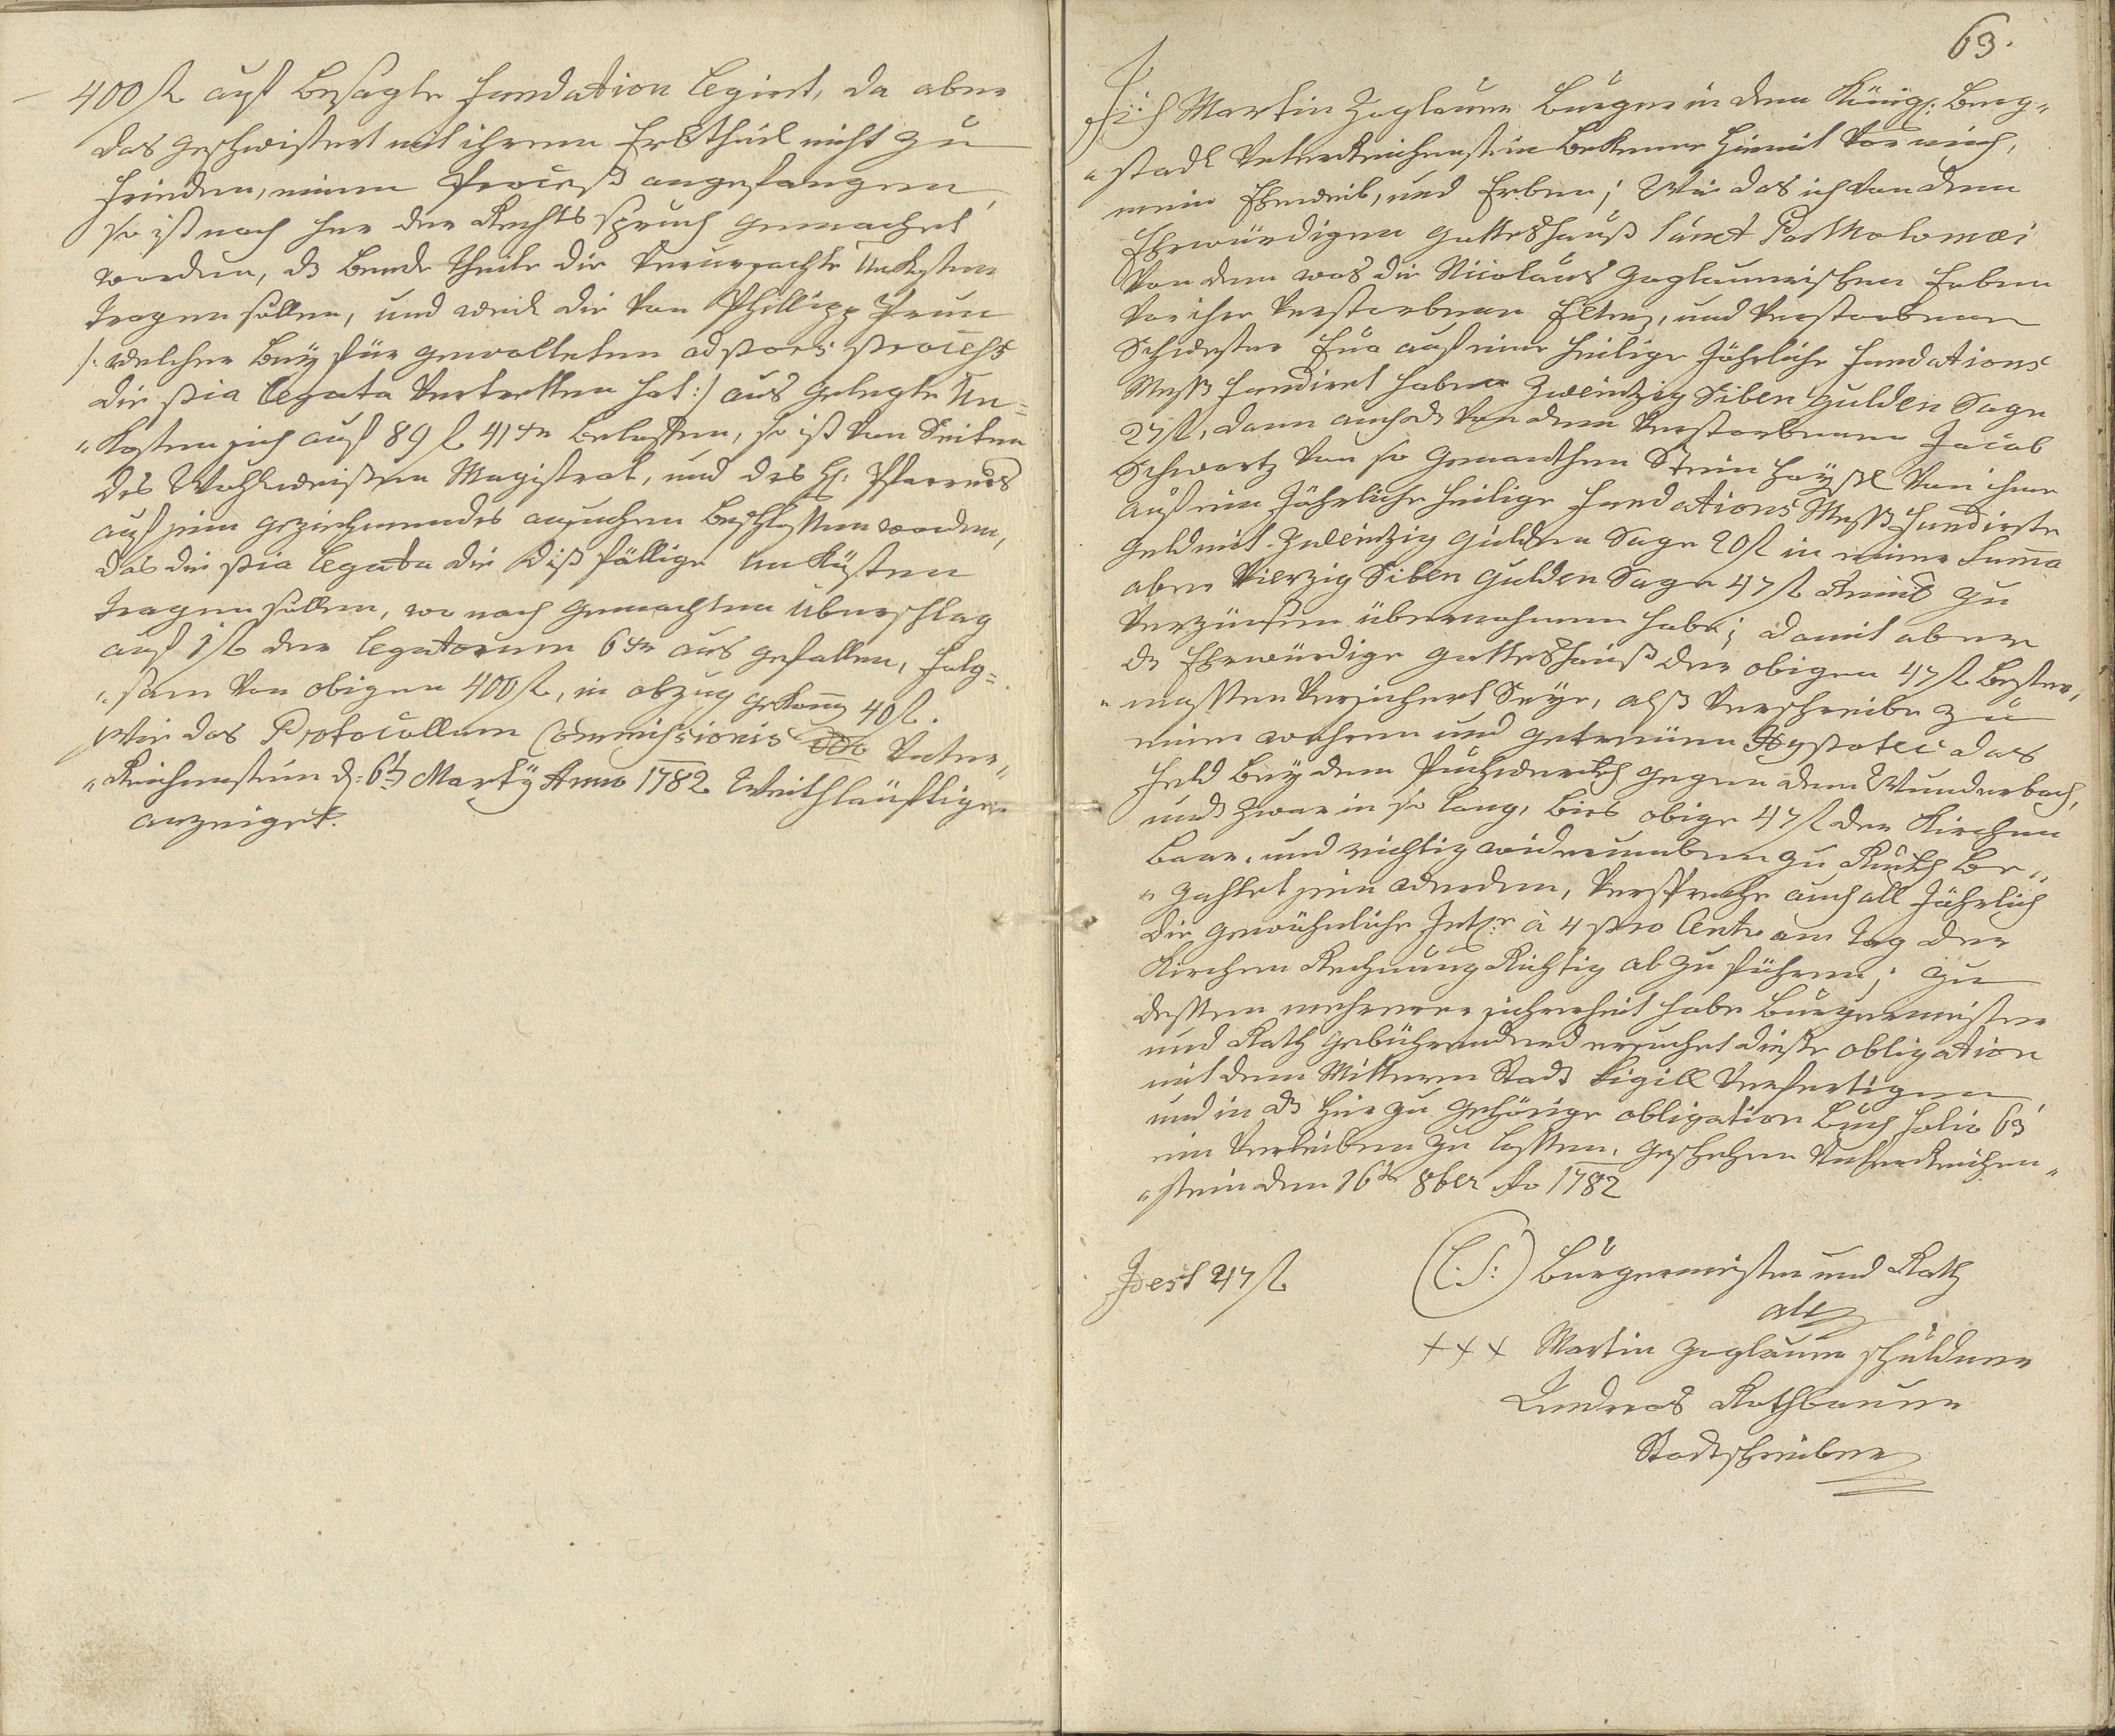 400 fl auf besagte Fundation legirt, da aber
das geschwistert mit ihrem Erbtheil nicht zu
frieden, einen Proceß angefangen,
so ist nach her der Rechts spruch gemachet
worden, ds beede theile die verursachte Unkosten
tragen sollen, und weil die von Phillipp
/: welcher bey für gewalteten process
die pia legata vertretten hat :/ aus gelegte Un=
"kosten sich auf 89 f 41 xr belaffen, so ist von Seiten
des Wohlweisen Magistrat, und des H: Pfarrers
auf sein geziehmendes ansuchen beschlossen worden,
das die pia legata die dißfällige unkösten
tragen sollen, wo nach gemachten überschlag
auf 1 fl der legatorum 6 xr aus gefallen, folg=
"sam von obigen 400 fl, in abzug gekomen 40 f.
Wie das Protocollum Commissionis ddo Unter"
"Reichenstein d: 6t Marty Anno 1782 weithläufftiger
anzeiget.
63.
Ich Martin Zoglauer burger in der Königl: Berg"
"stadt Unterreichenstein bekenne hiemit vor mich,
mein Eheweib, und Erben; Wie das ich von dem
Ehrwürdigen gotteshauß Sanct Bartholomæi
von dem was die Nicolaus Zoglauerischen Erben
vor ihre verstorbene Eltern, und verstorbenen
Schwester Eva auf eine heilige Jährliche fundations
Mess fundiret haben zweintzig Siben gulden Sage
27 fl, dann auch ds von dem verstorbenen Jacob
Schwartz von so genanthen Stein häysl von ihme
auf eine Jährliche heilige fundations Mess fundirte
geld mit zweintzig gulden Sage 20 fl in einer Suma
aber vierzig Siben gulden Sage 47 fl Reinis zu
verzünsen übernohmen habe; damit aber
ds Ehrwürdige gotteshauß der obigen 47 fl bester,
"massen versichert Seye, alß verschreibe zu
einer wahren und getreuen Hypotec das
feld bey dem gegen dem Wunderbach,
und zwar in so lang, bies obige 47 fl der Kirchen
baar, und richtig widerumben zu Ruckh be"
"zahlet sein werden, verspreche auch all Jährlich
die gewöhnliche Intrse à 4 pro Cento am tag der
Kirchen Rechnung Richtig ab zu führen; zu
dessen mehrerer sicherheit habe burgermeister
und Rath gebührendend ersuchet diese obligation
mit dem Mittern Stadt Sigill verfertigen
und in ds hier zu gehörige obligation buch folio 63
ein verleiben zu lassen. geschehen Unterreichen"
"stein den 16te 8ber Ao 1782
Id est 47 fl
(L: S:) Burgermeister und Rath
alda
+++ Martin Zoglauer schuldner
Andreas Rothbauer
Stadtschreiber